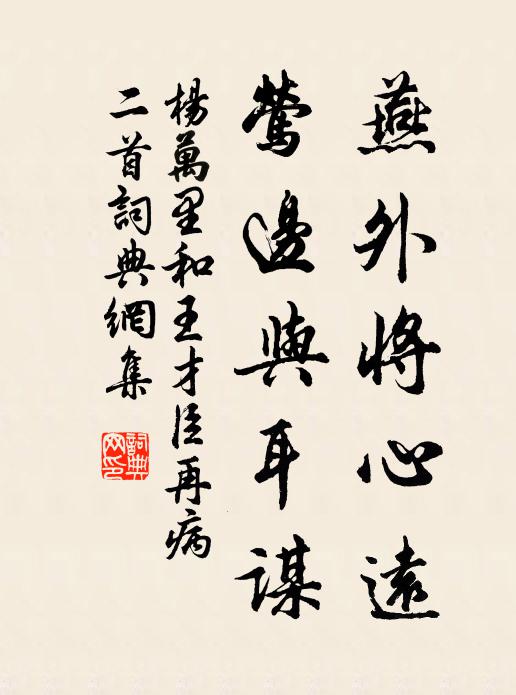 燕外將心遠
鶯邊與耳謀
楊萬里和王才臣再病
二首詞典網集
詞典網印